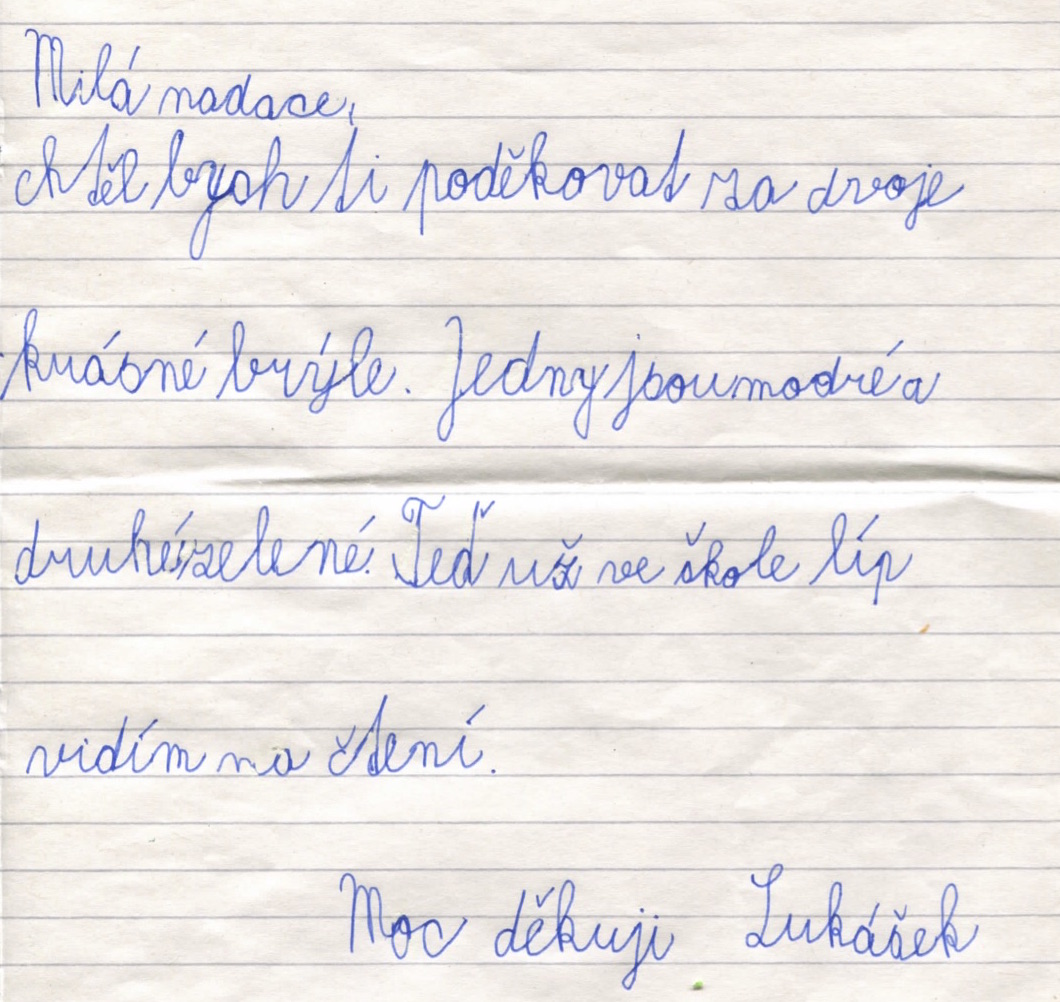 Milá nadace,
chtěl bych ti poděkovat za dvoje
krásné brýle. Jedny jsou modré a
druhé zelené. Teď už ve škole líp
vidím na čtení.
Moc děkuji Lukášek